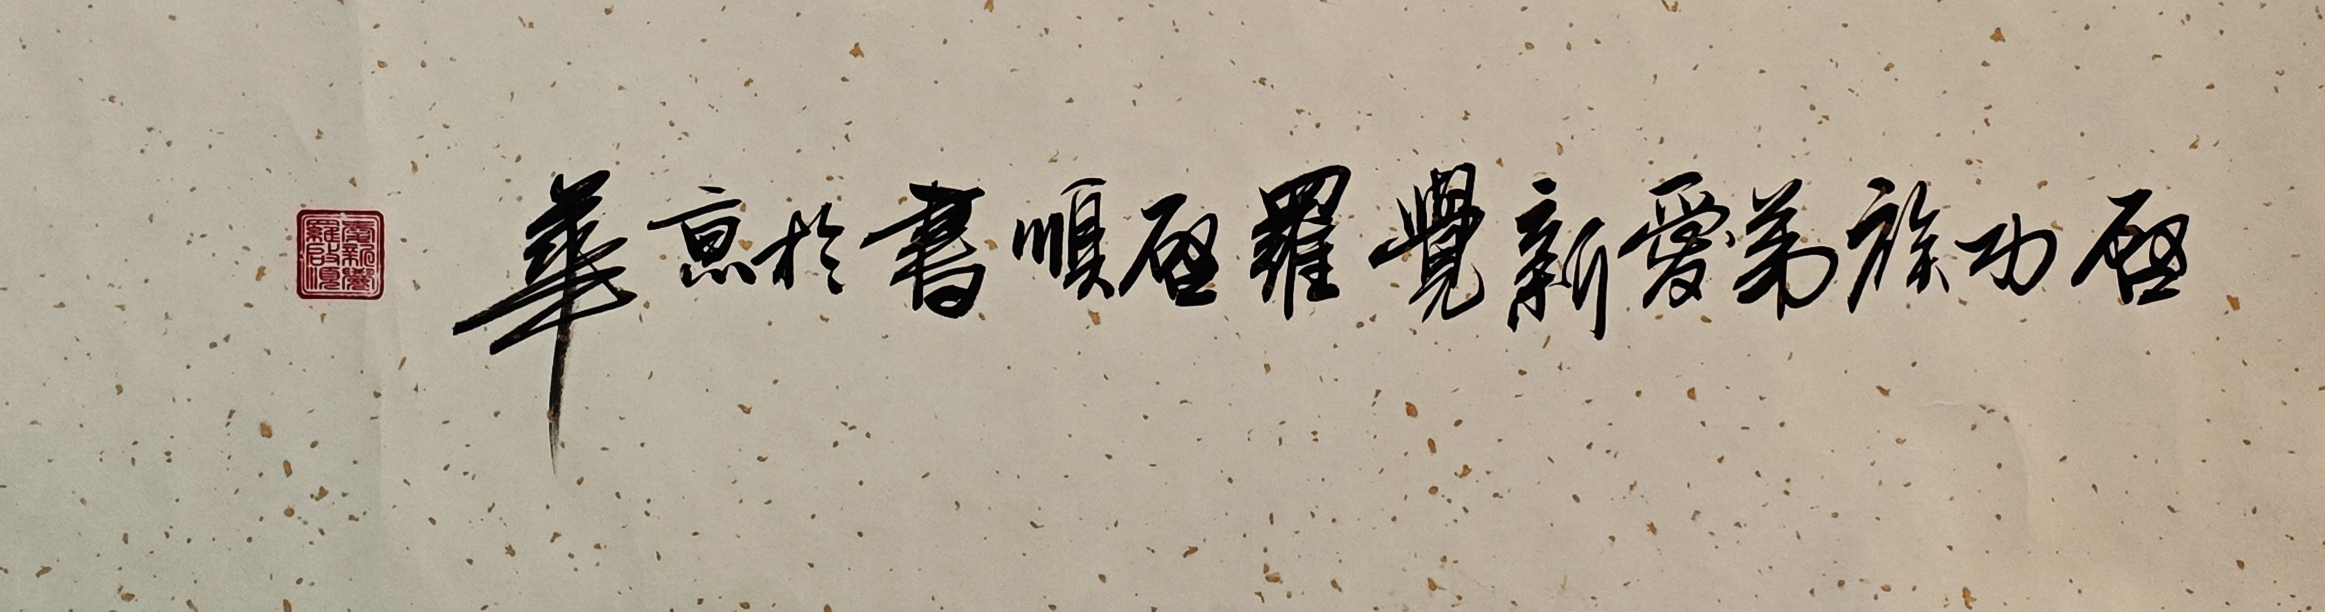 啓功族弟愛新覺羅啓順書於京華
愛新覺羅啟順